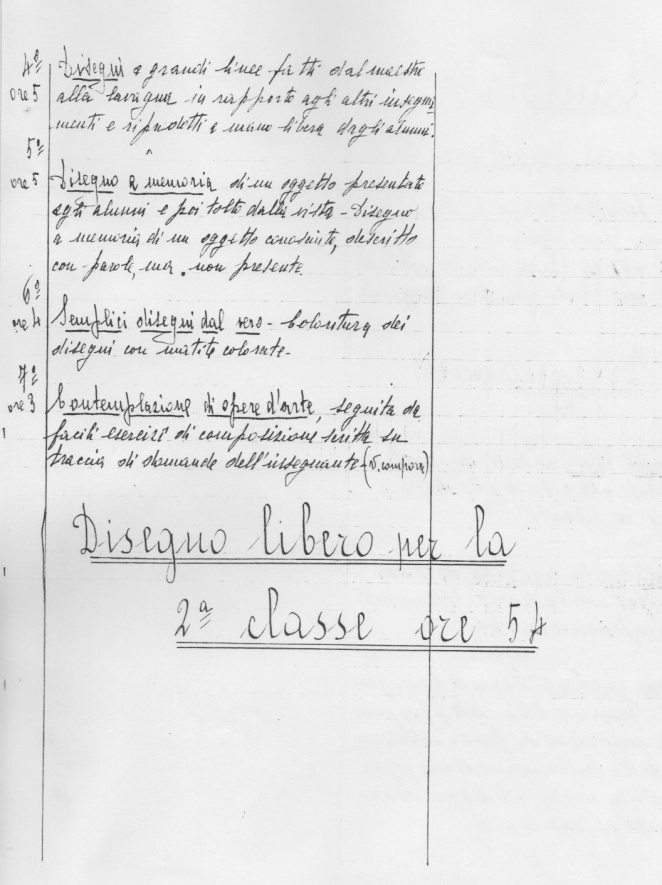 4ª Disegni a grandi linee fatti dal maestro
ore 5 alla lavagna in rapporto agli altri insegna
menti e riprodotti a mano libera dagli alunni.
5ª
ore 5 Disegno a memoria di un oggetto presentato
agli alunni e poi tolto dalla vista - Disegno
a memoria di un oggetto conosciuto, descritto
con parole, ma non presente.
6ª
ore 4 Semplici disegni dal vero - Coloritura dei
disegni con matite colorate -
7ª
ore 3 Contemplazione di opere d'arte, seguita da
facili esercizi di composizione scritta su
traccia di domande dell'insegnante - (V. compore)
Disegno libero per la
2ª classe ore 54